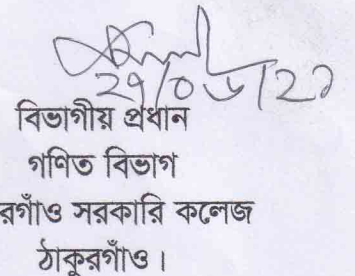 বিভাগীয় প্রধান
গণিত বিভাগ
রগাঁও সরকারি কলেজ
ঠাকুরগাঁও।